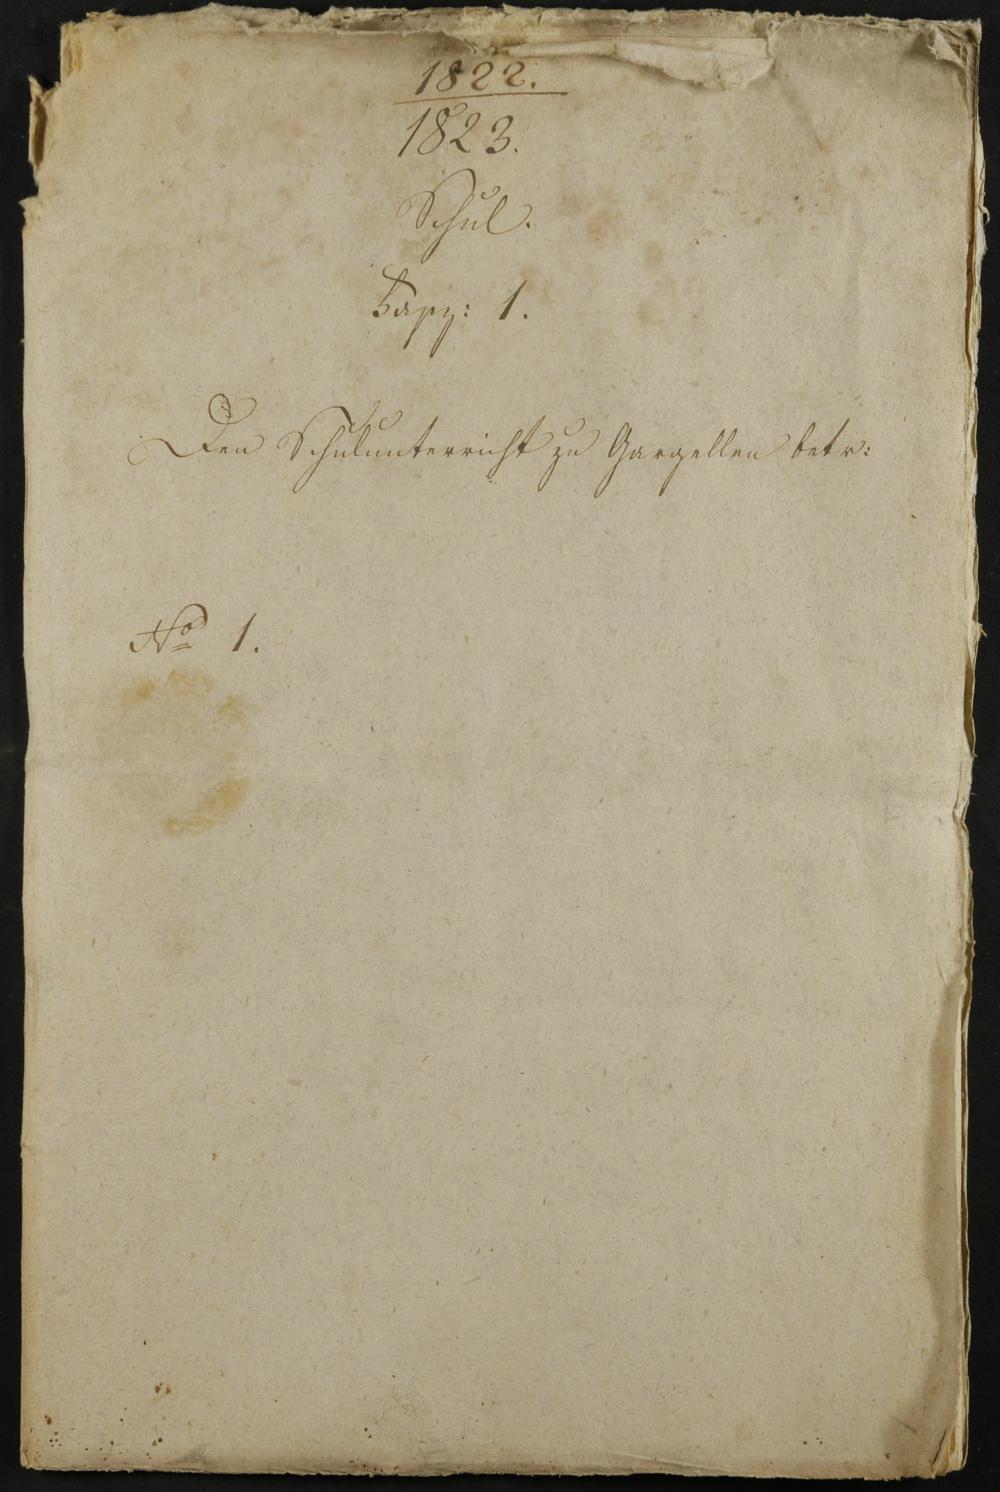 1822.
1823.
Schul.
Fasz: 1.
Den Schulunterricht zu Gargellen betr:
No 1.